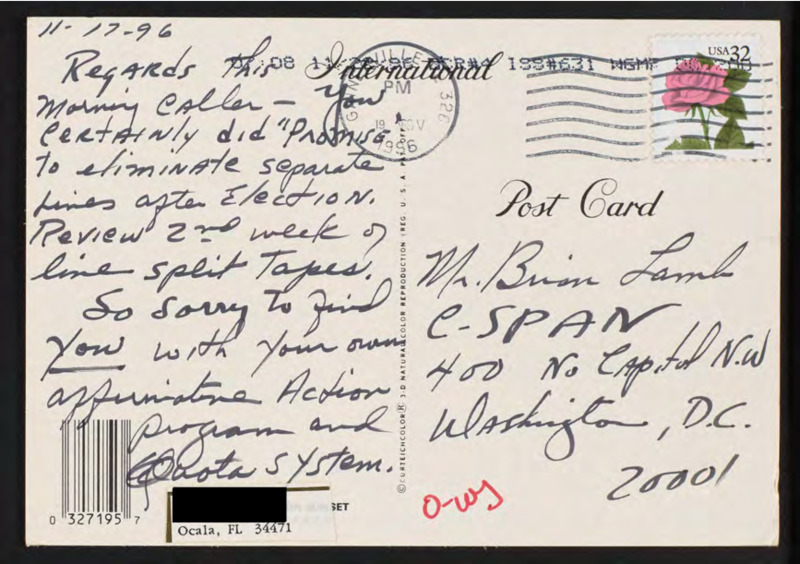 11-17-96
Regards this
Morning Caller – You
CERTAINLY did "Promise
to eliminate separate
Lines after Election.
Review 2nd week of
line split Tapes.
So Sorry to find
You with your own
affirmative Action
program and
Quota SYSTEM.
0 327195 7
SET
Ocala, FL 34471
International
PM
326
1996
USA 32
Post Card
Mr. Brian Lamb
C-SPAN
400 No Capitol N.W
Washington, D.C.
20001
© CURTEICHCOLOR® 3-D NATURAL COLOR REPRODUCTION (REG. U.S.A.